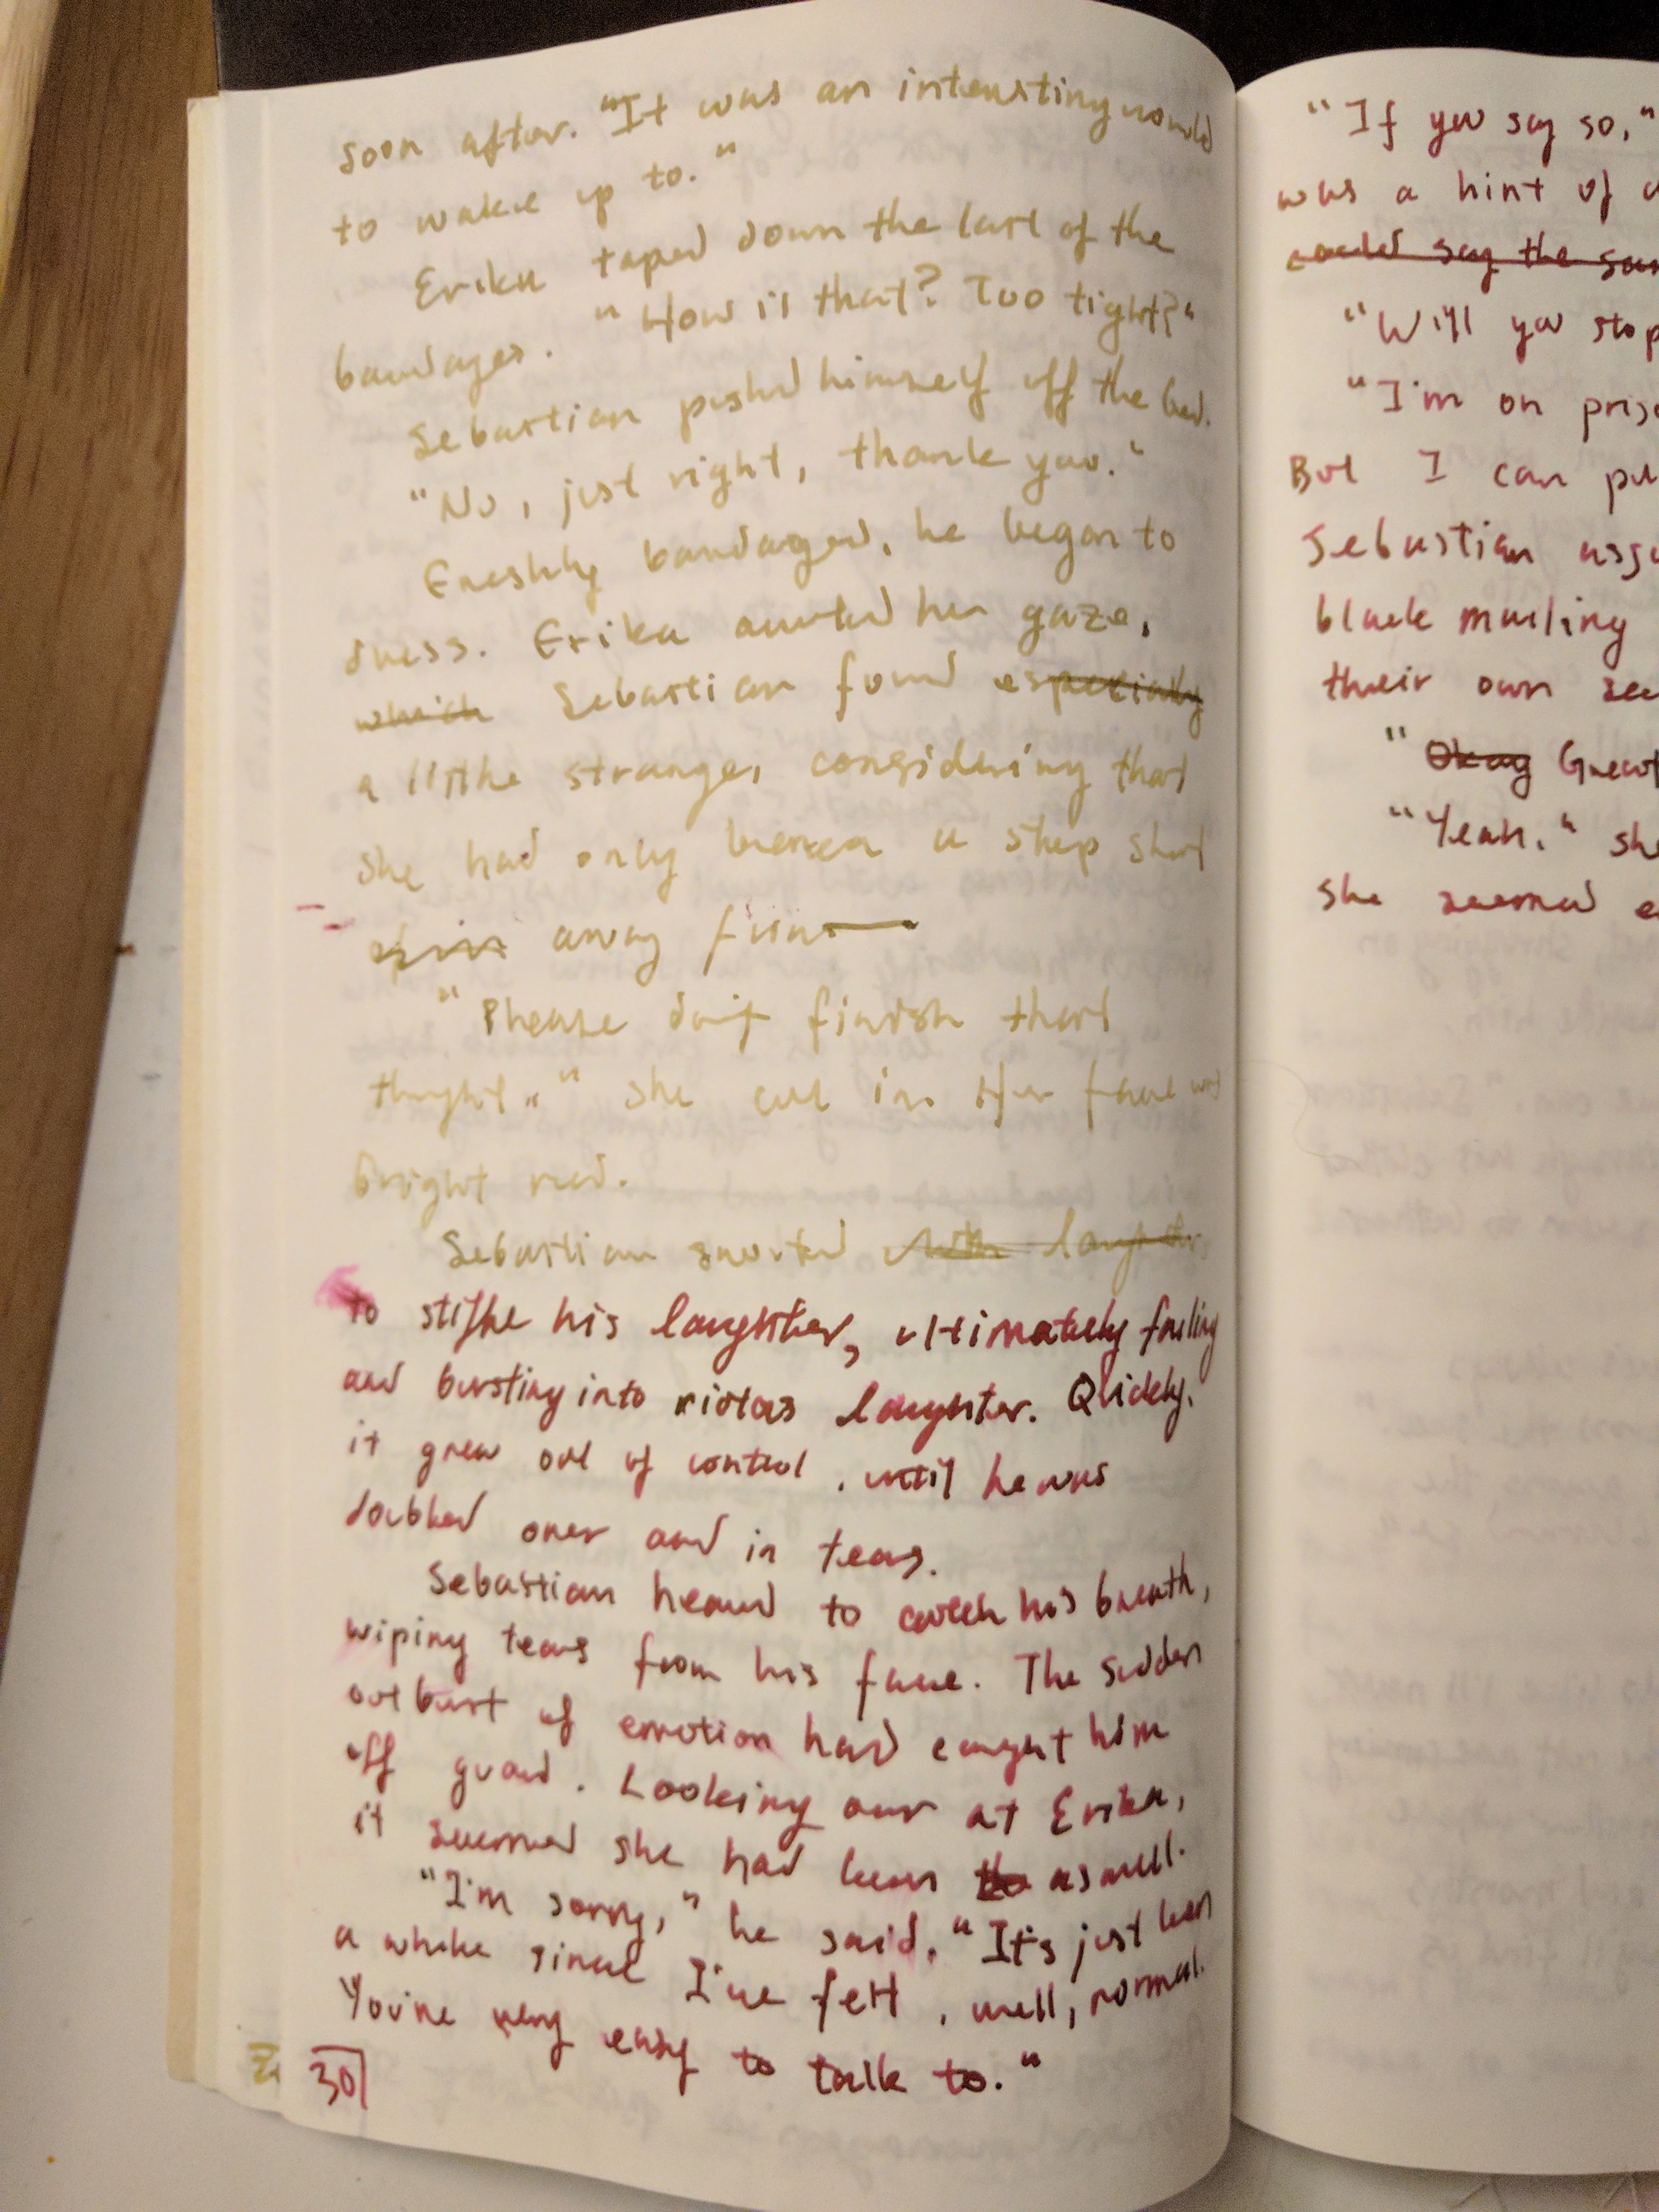 soon after. "It was an interesting world
to wake up to."
Erika taped down the last of the
bandages. "How is that? Too tight?"
Sebastian pushed himself off the bed.
"No, just right, thank you."
Freshly bandaged, he began to
dress. Erika averted her gaze,
which Sebastian found especially
a little strange, considering that
she had only been a step short
away from
"Please don't finish that
thought." she cut in. Her face was
bright red.
Sebastian snorted with laughter
to stifle his laughter, ultimately failing
and bursting into riotous laughter. Quickly,
it grew out of control, until he was
doubled over and in tears.
Sebastian heaved to catch his breath,
wiping tears from his face. The sudden
outburst of emotion had caught him
off guard. Looking over at Erika,
it seemed she had been as well.
"I'm sorry," he said. "It's just been
a while since I've felt, well, normal.
You're very easy to talk to."
30
"If you say so,"
was a hint of
could say the
"Will you stop
"I'm on
But I can
Sebastian
black mailing
their own
"Okay Great
"Yeah." she
she seemed